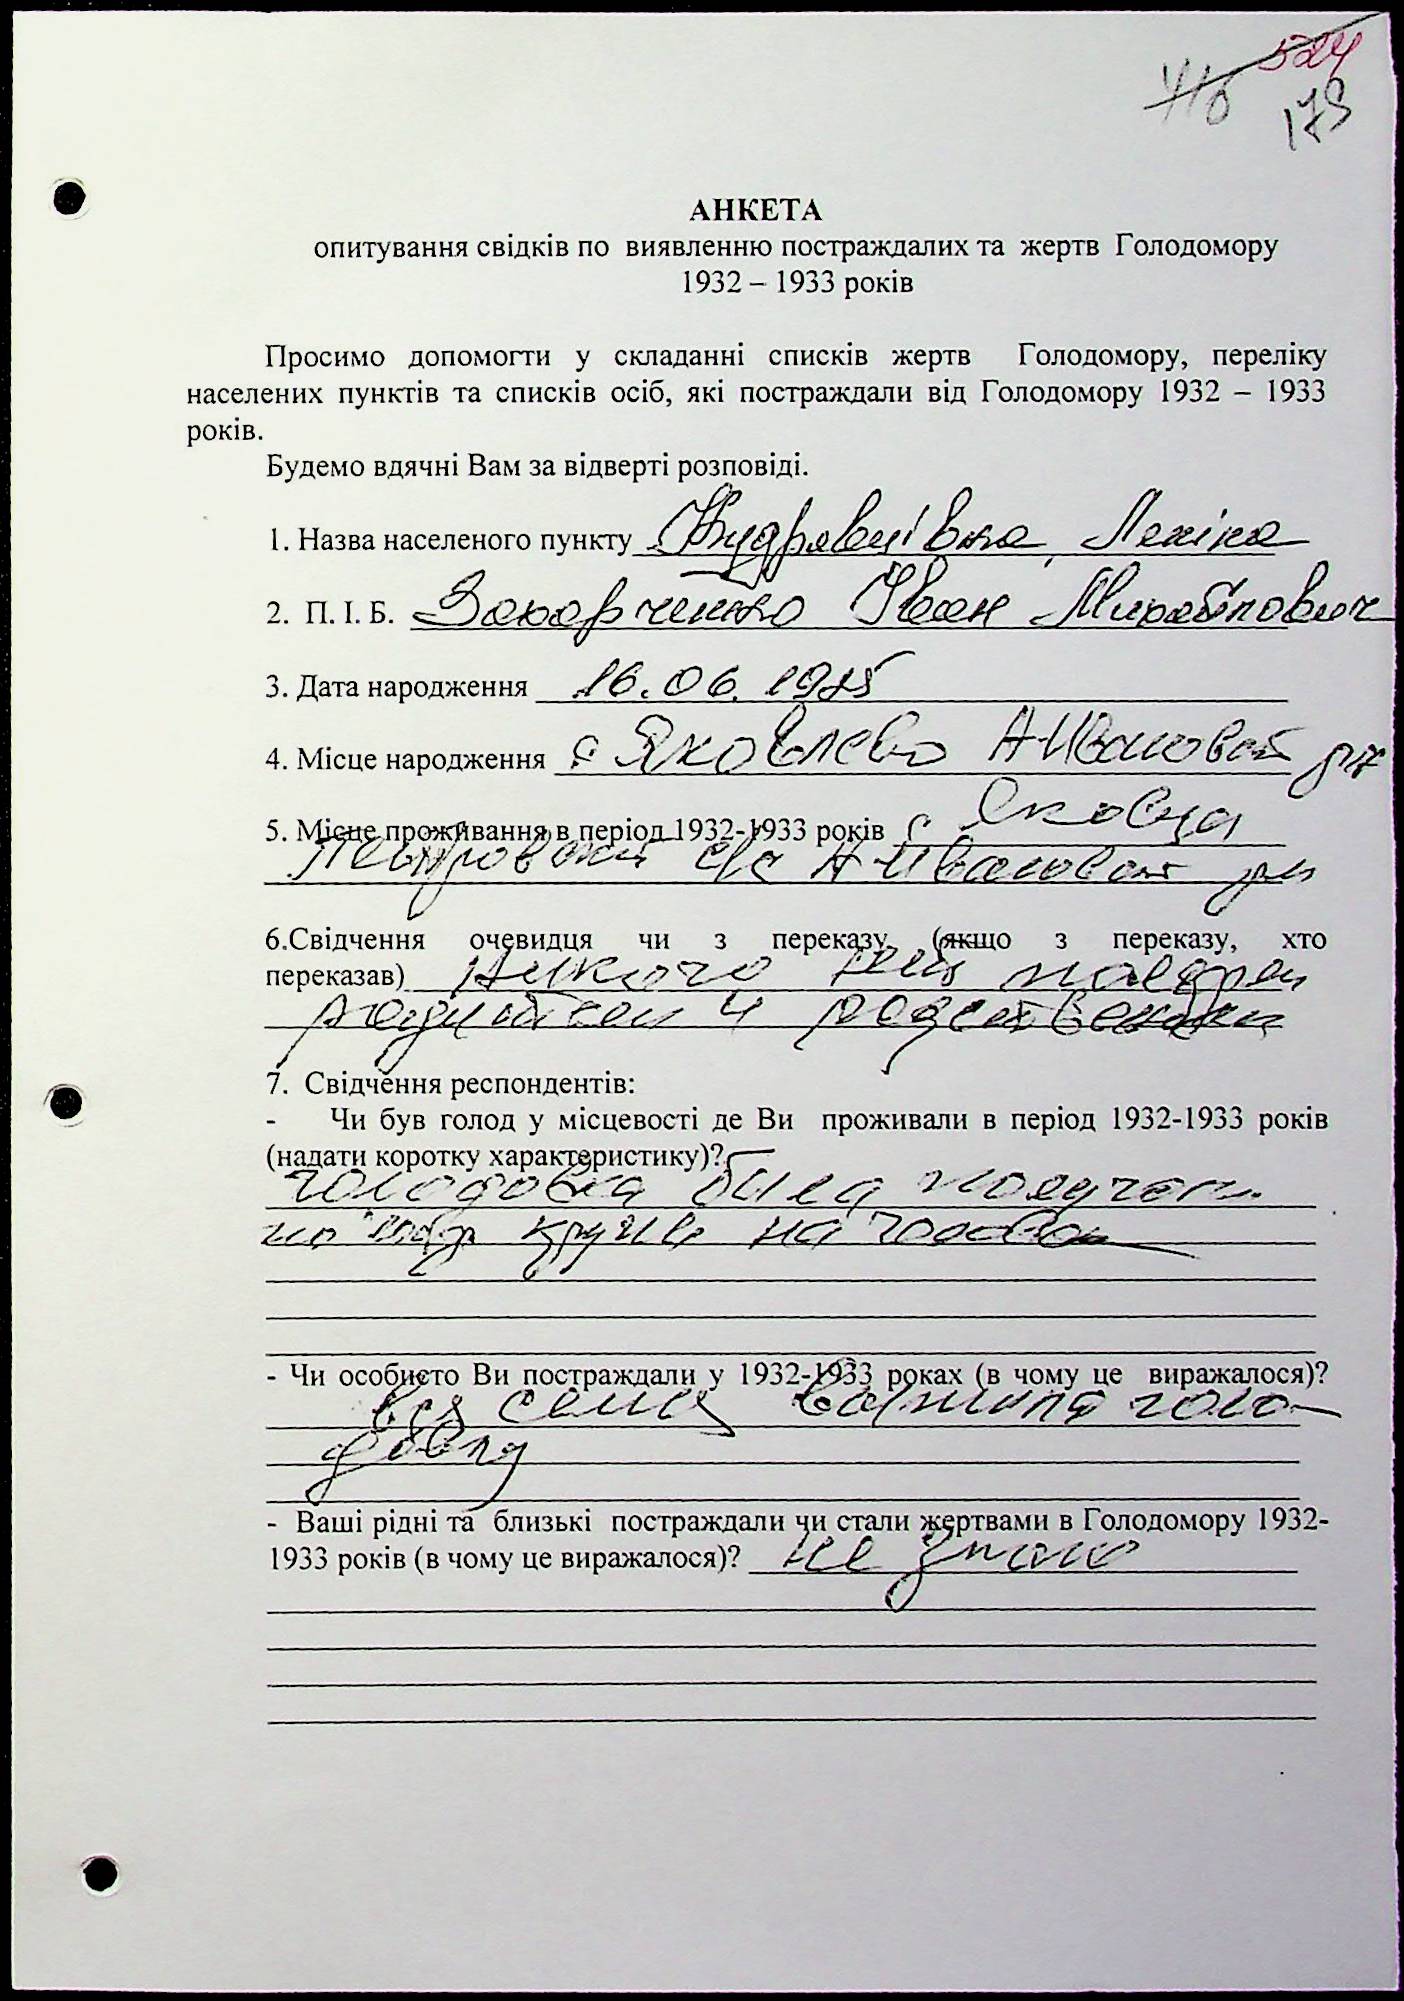 524
716
179
АНКЕТА
опитування свідків по виявленню постраждалих та жертв Голодомору
1932 – 1933 років
Просимо допомогти у складанні списків жертв Голодомору, переліку
населених пунктів та списків осіб, які постраждали від Голодомору 1932 – 1933
років.
Будемо вдячні Вам за відверті розповіді.
1. Назва населеного пункту Кудрявцівка,
2. П. І. Б. Захарченко Іван
3. Дата народження 16.06.1925
4. Місце народження с Яковлево Н-Ивановск
5. Місце проживання в період 1932-1933 років с
с/с Н-Ивановск
6.Свідчення очевидця чи з переказу (якщо з переказу, хто
переказав)
и родственники
7. Свідчення респондентів:
- Чи був голод у місцевості де Ви проживали в період 1932-1933 років
(надати коротку характеристику)?
голодовка была получали
на
- Чи особисто Ви постраждали у 1932-1933 роках (в чому це виражалося)?
вся семя голо-
- Ваші рідні та близькі постраждали чи стали жертвами в Голодомору 1932-
1933 років (в чому це виражалося)? не знаю